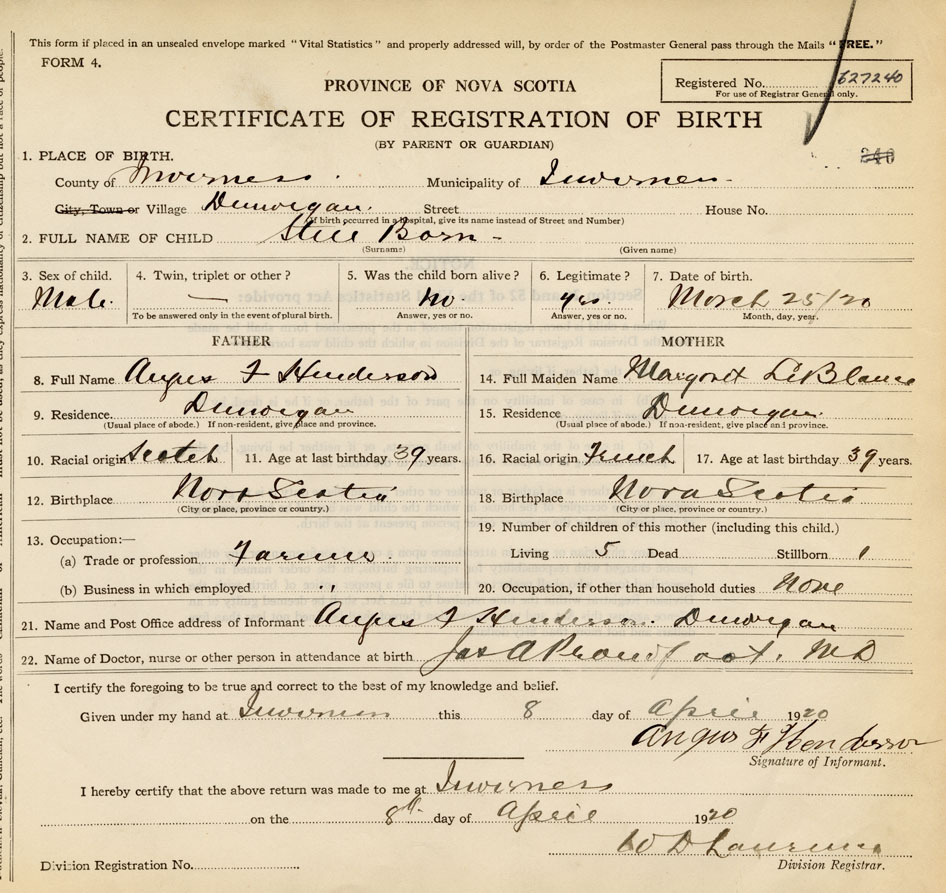 This form if placed in an unsealed envelope marked "Vital Statistics" and properly addressed will, by order of the Postmaster General pass through the Mails "FREE."
FORM 4.
PROVINCE OF NOVA SCOTIA
Registered No. 627240
For use of Registrar General only.
CERTIFICATE OF REGISTRATION OF BIRTH
(BY PARENT OR GUARDIAN)
246
1. PLACE OF BIRTH.
County of Inverness. Municipality of Inverness
City, Town or Village Dunvegan. Street House No.
(If birth occurred in a hospital, give its name instead of Street and Number)
2. FULL NAME OF CHILD Still Born -
(Surname) (Given name)
3. Sex of child. 4. Twin, triplet or other? 5. Was the child born alive? 6. Legitimate? 7. Date of birth.
Male. — No. yes. March 25/20
To be answered only in the event of plural birth. Answer, yes or no. Answer, yes or no. Month, day, year.
FATHER MOTHER
8. Full Name Angus F Henderson 14. Full Maiden Name Margaret LeBlanc
9. Residence. Dunvegan 15. Residence Dunvegan.
(Usual place of abode.) If non-resident, give place and province. (Usual place of abode.) If non-resident, give place and province.
10. Racial origin Scotch 11. Age at last birthday 39 years. 16. Racial origin French 17. Age at last birthday 39 years.
12. Birthplace Nova Scotia 18. Birthplace Nova Scotia
(City or place, province or country.) (City or place, province or country.)
13. Occupation:— 19. Number of children of this mother (including this child.)
(a) Trade or profession Farmer. Living 5 Dead Stillborn 1
(b) Business in which employed " 20. Occupation, if other than household duties None
21. Name and Post Office address of Informant Angus F Henderson. Dunvegan
22. Name of Doctor, nurse or other person in attendance at birth Jas A Proudfoot. MD
I certify the foregoing to be true and correct to the best of my knowledge and belief.
Given under my hand at Inverness this 8 day of April 1920
Angus F Henderson
Signature of Informant.
I hereby certify that the above return was made to me at Inverness
on the 8th day of April 1920
W D Lawrence
Division Registration No. Division Registrar.